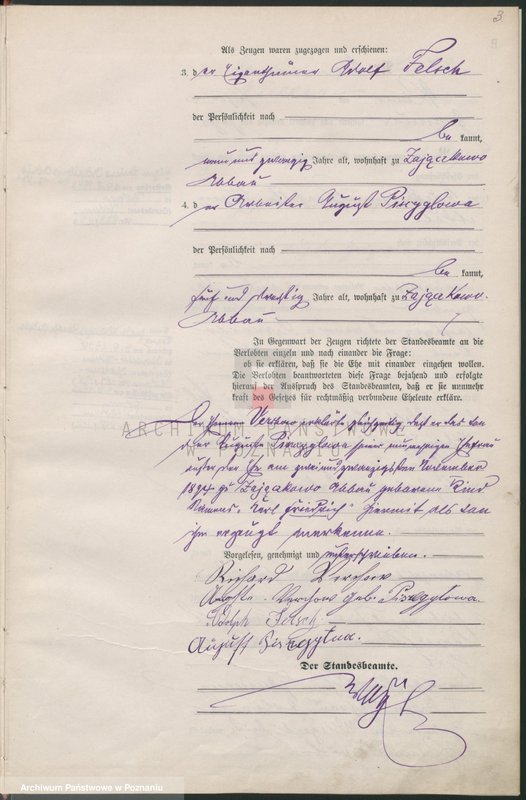 3.
Als Zeugen waren zugezogen und erschienen:
3. der Eigenthümer Adolf Felsch
der Persönlichkeit nach
bekannt,
neunundzwanzig Jahre alt, wohnhaft zu Zajączkowo
Abbau
4. der Arbeiter August Piszyglowa
der Persönlichkeit nach
bekannt,
fünf und dreißig Jahre alt, wohnhaft zu Zajączkowo
Abbau
In Gegenwart der Zeugen richtete der Standesbeamte an die
Verlobten einzeln und nach einander die Frage:
ob sie erklären, daß sie die Ehe mit einander eingehen wollen.
Die Verlobten beantworteten diese Frage bejahend und erfolgte
hierauf der Ausspruch des Standesbeamten, daß er sie nunmehr
kraft des Gesetzes für rechtmäßig verbundene Eheleute erkläre.
erklärte gleichzeitig, daß er das von
der Auguste seiner nunmehrigen Ehefrau
außer der Ehe am zweiundzwanzigsten
1894 zu Zajączkowo Abbau geborene Kind
Namens "Karl Friedrich" hiermit als von
ihm erzeugt anerkenne.
ARCHIWUM PAŃSTWOWE
W POZNANIU
Vorgelesen, genehmigt und unterschrieben.
Richard Verchow
Auguste Verchow geb. Piszyglowa.
Adolph Felsch
August
Der Standesbeamte.
Archiwum Państwowe w Poznaniu